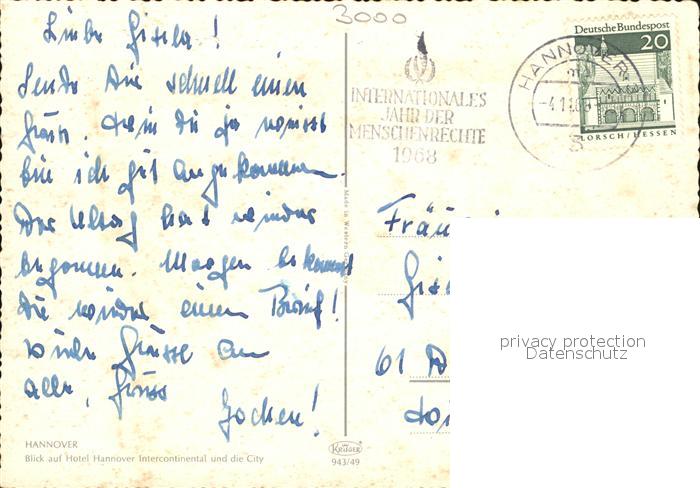 3000
Liebe Gisela!
Sende Dir schnell einen
Gruss. Wie Du ja weisst
bin ich gut angekommen.
Der Alltag hat wieder
begonnen. Morgen bekommst
Du wieder einen Brief!
Viele Grüsse an
alle, Gruss
Jochen!
HANNOVER
Blick auf Hotel Hannover Intercontinental und die City
Made in Western Germany
KRÜGER
943/49
INTERNATIONALES
JAHR DER
MENSCHENRECHTE
1968
HANNOVER
Deutsche Bundespost
20
LORSCH/HESSEN
Fräu
Gis
61 D
privacy protection
Datenschutz